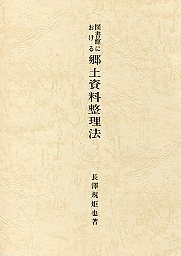 図書館に
おける
郷土資料整理法
長澤規矩也著